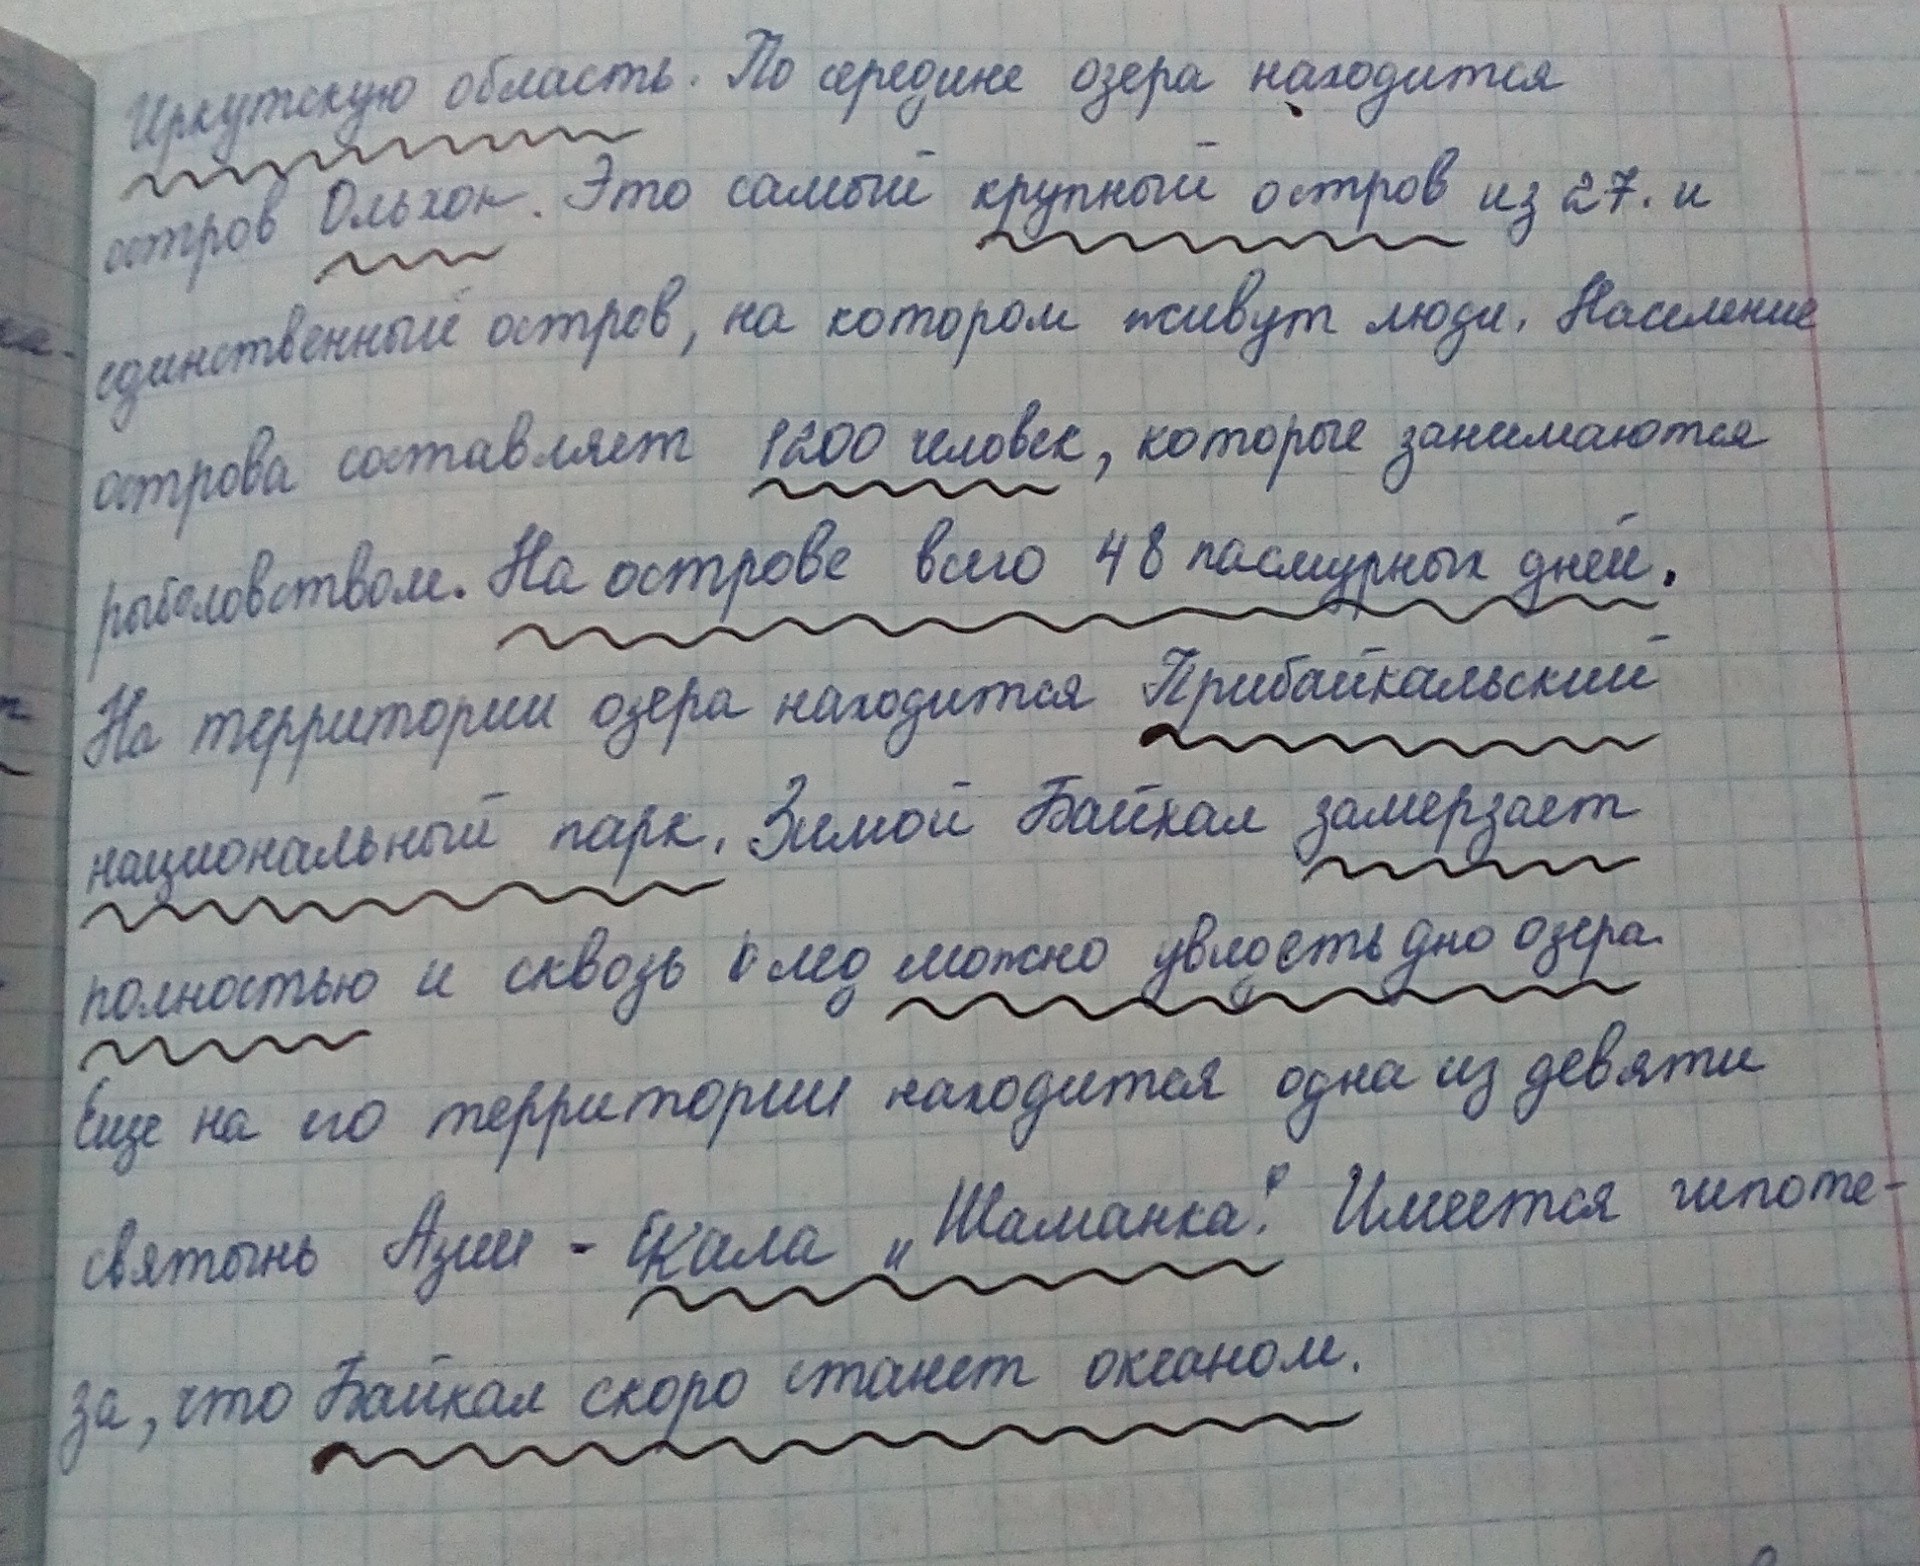 Иркутскую область. По середине озера находится
остров Ольхон. Это самый крупный остров из 27. и
единственный остров, на котором живут люди. Население
острова составляет 1200 человек, которые занимаются
рыболовством. На острове всего 48 пасмурных дней.
На территории озера находится Прибайкальский
национальный парк. Зимой Байкал замерзает
полностью и сквозь лед можно увидеть дно озера.
Еще на его территории находится одна из девяти
святынь Азии - Скала „Шаманка". Имеется гипоте-
за, что Байкал скоро станет океаном.